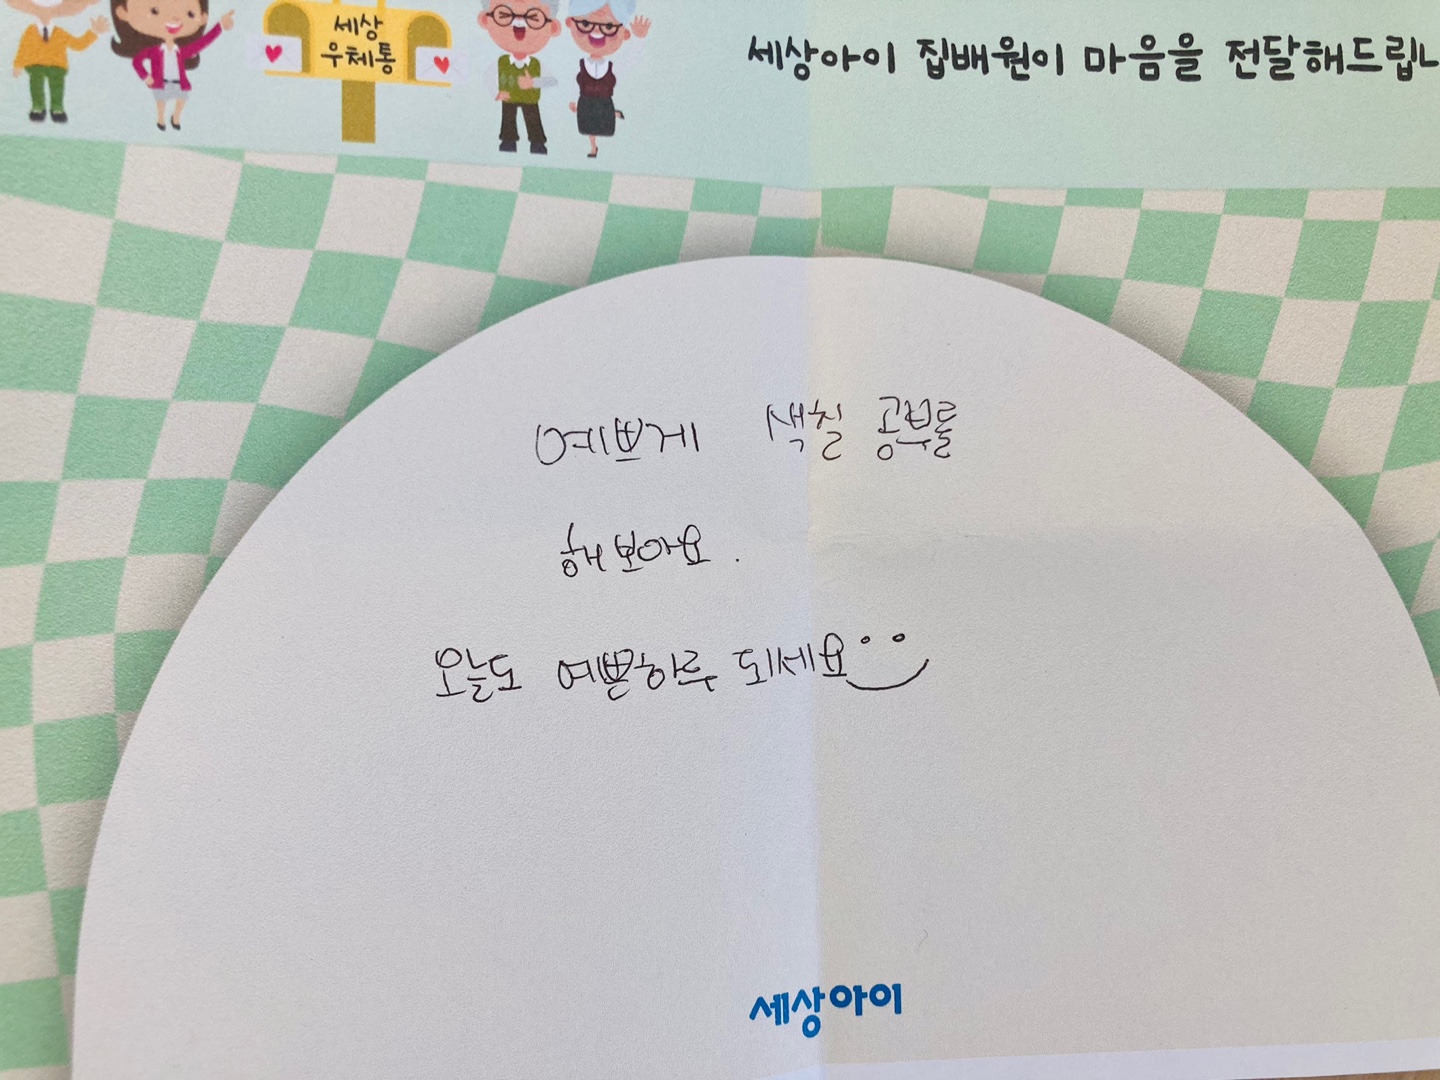 세상
우체통
세상아이 집배원이 마음을 전달해드립니
예쁘게 색칠 공부를
해보아요.
오늘도 예쁜하루 되세요
세상아이